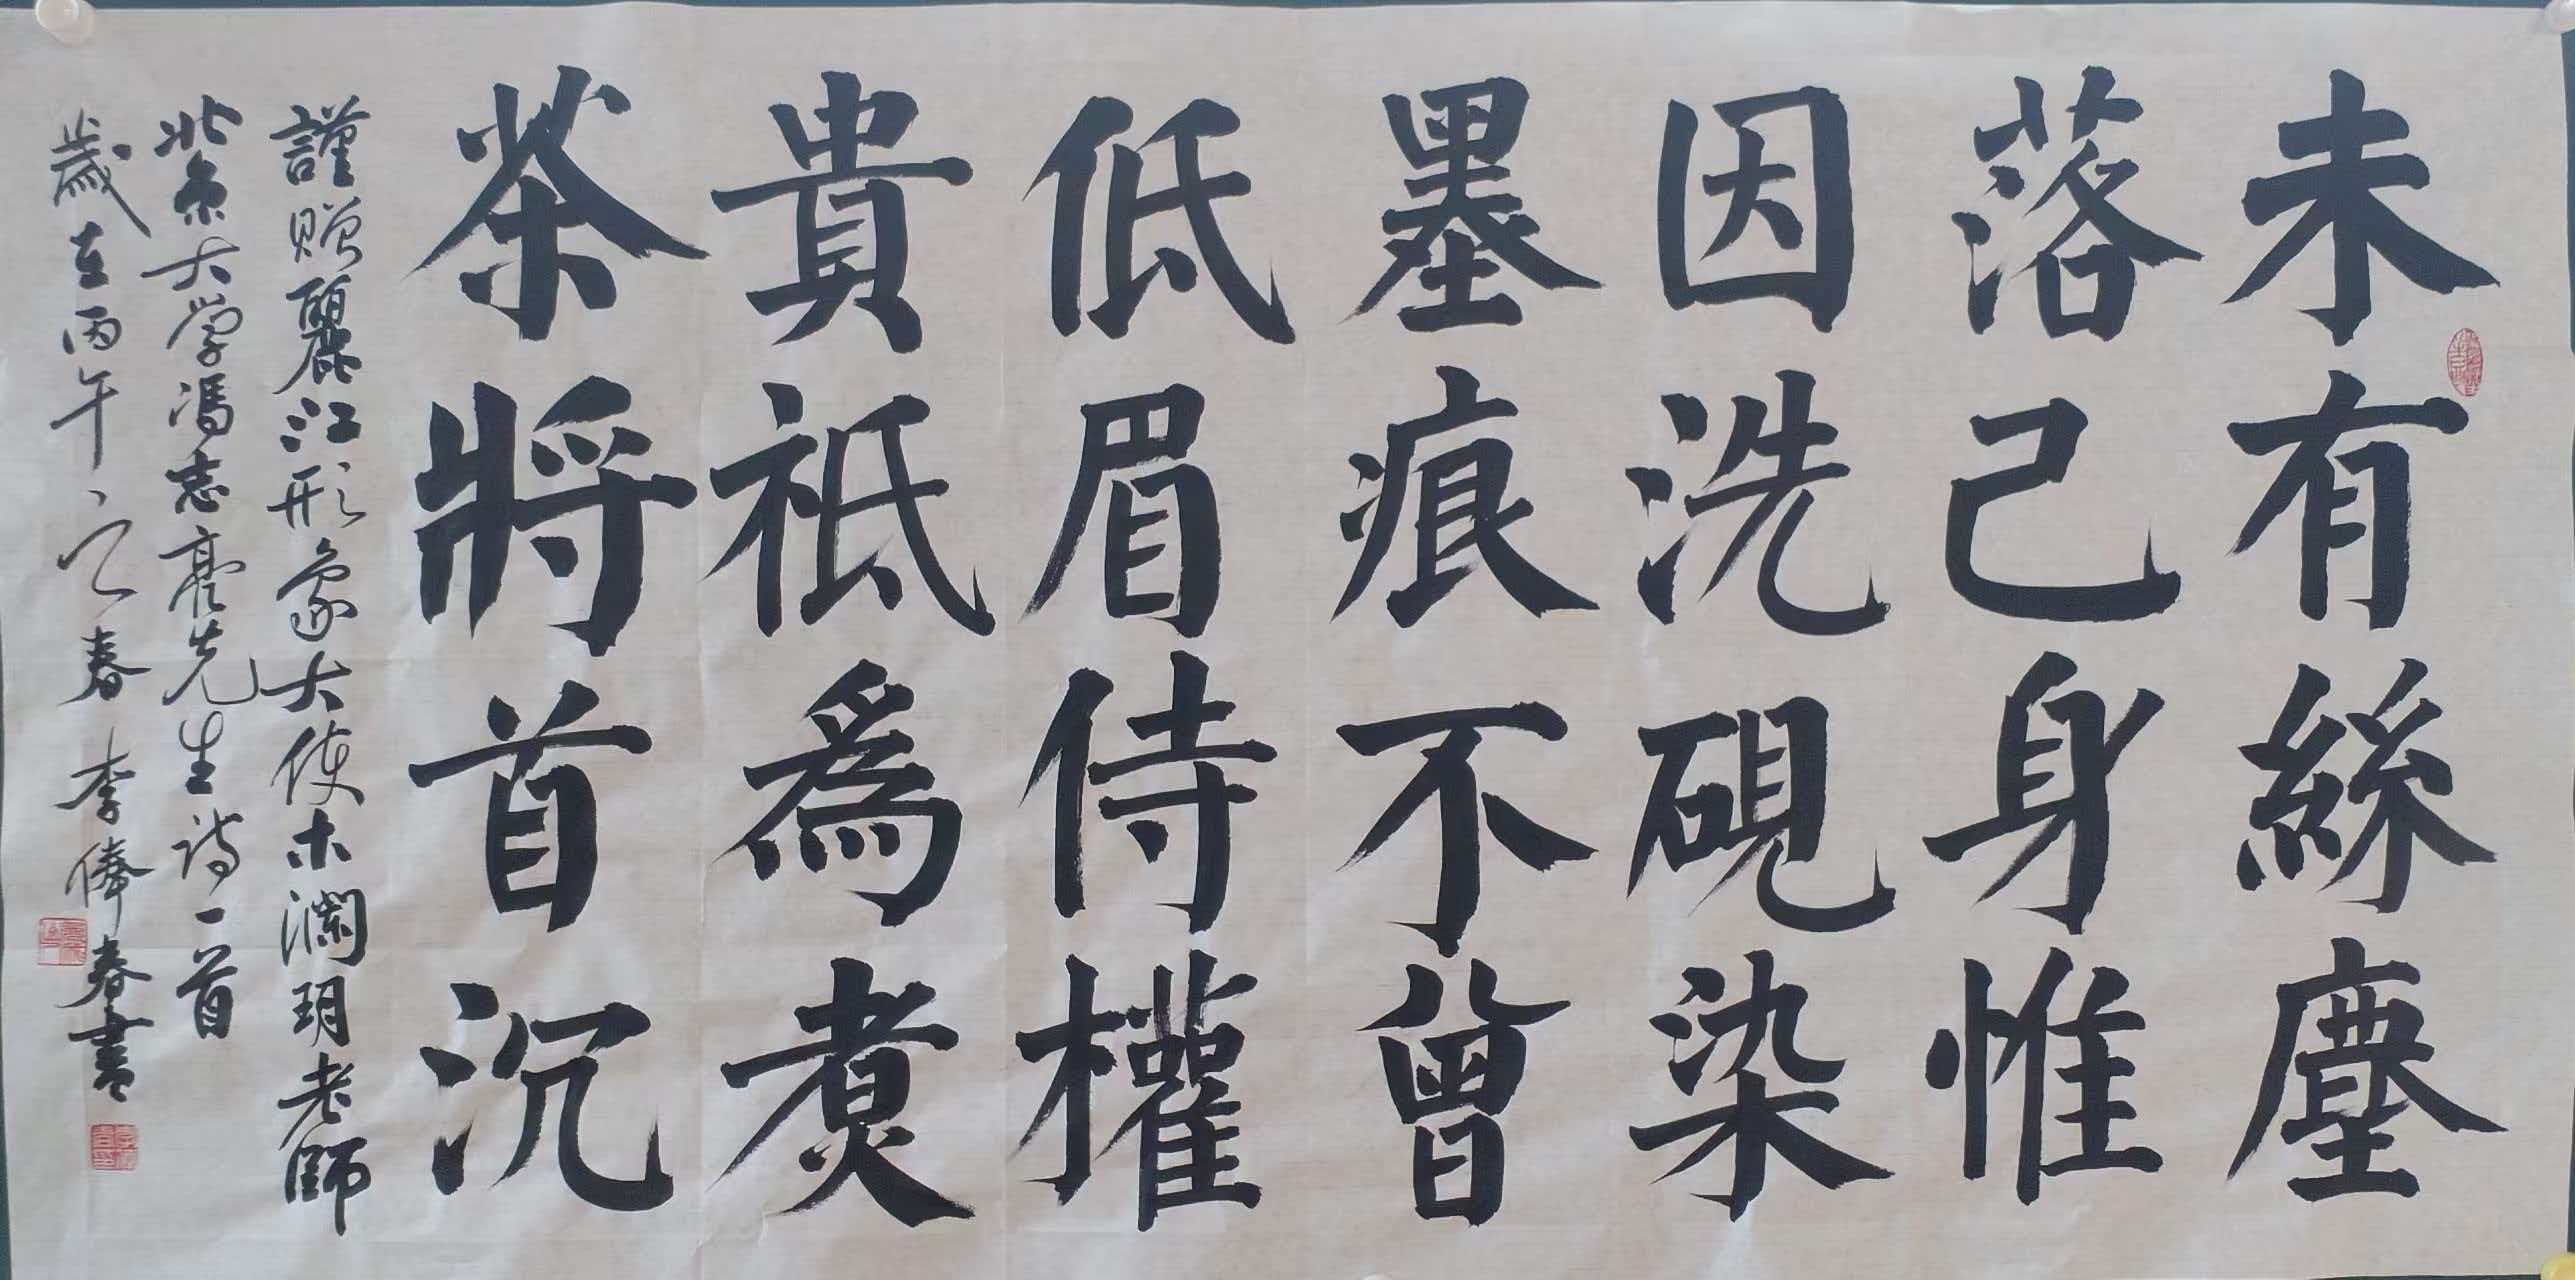 未有絲塵
落己身惟
因洗硯染
墨痕不曾
低眉侍權
貴祇為煮
茶將首沉
謹贈麗江形象大使木瀾玥老師
北京大学馮志亮先生诗一首
歲在丙午之春李俸春書